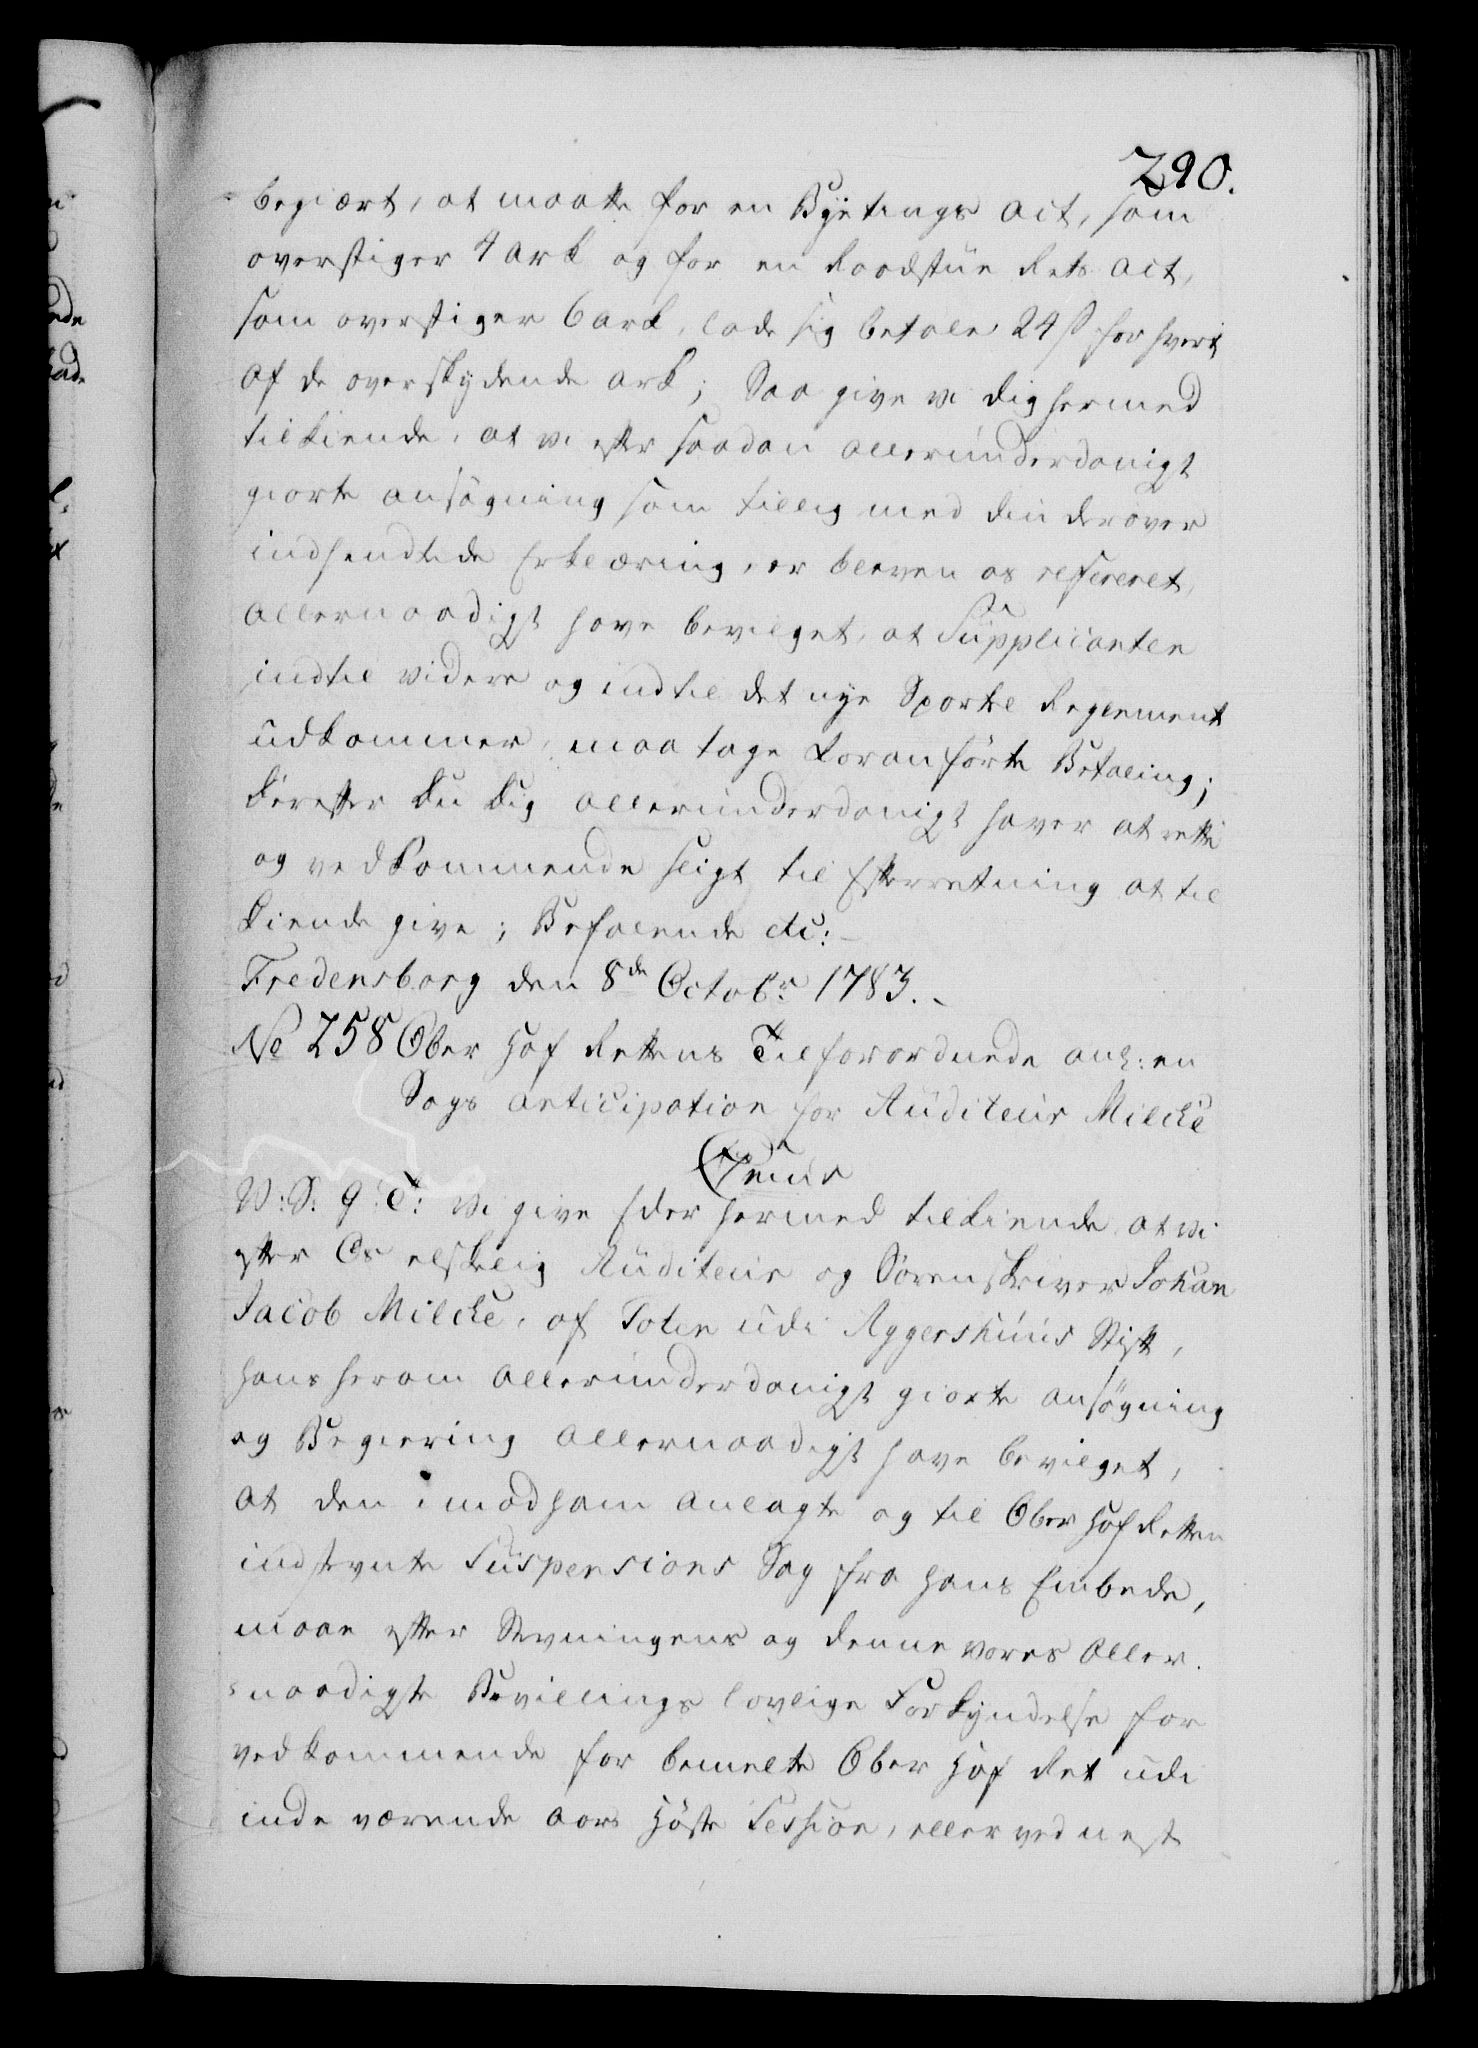 290.
begiært, at maatte for en Bÿetings Act, som
overstiger 4 Ark og for en Raadstüe Rets Act,
som overstiger 6 Ark, lade sig betale 24 s for hvert
af de overskydende Ark; Saa give vi dig hermed
tilkiende, at vi efter saadan alleründerdanigst
giorte ansögning som tillig med din derover
indsendtede Erklæring, er bleven os refereret,
allernaadigst have bevilget, at Süpplicanten
indtil videre og indtil det nye Sportel Reglement
üdkommer, maa tage foranförte Betaling;
derefter du dig alleründerdanigst haver at rette
og vedkommende sligt til Efterretning at til
kiende give; Befalende etc:
Fredensborg den 8de Octobr 1783.
No 258 Ober Hof Rettens Tilforordnede anl: en
Sags anticipation for Aüditeür Milche
W: S: G: T: Vi give Eder hermed tilkiende, at vi
efter Os elskelig Aüditeür og Sorenskriver Johan
Jacob Milche, af Toten üdi Aggershüüs Stift,
hans herom alleründerdanigst giorte ansögning
og Begiering allernaadigst have bevilget,
at den imod ham anlagte og til Ober Hof Retten
indstevnte Süspensions Sag fra hans Embede,
maae efter Stevningens og denne vores aller-
naadigste Bevillings lovlige Forkyndelse for
vedkommende for bemelte Ober Hof Ret üdi
inde værende Aars Höste Session, eller ved nest